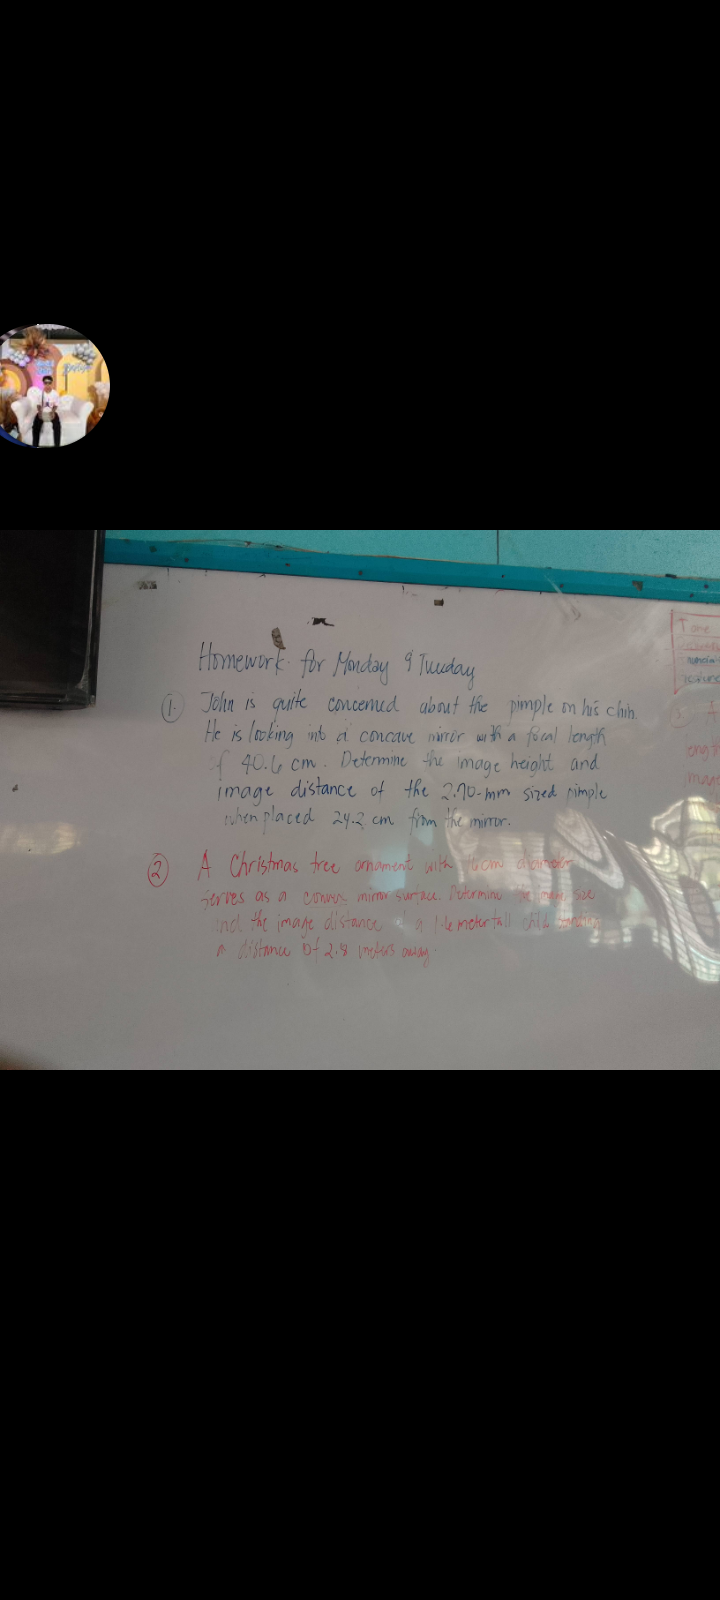 Homework for Monday & Tuesday
1. John is quite concerned about the pimple on his chin.
He is looking int a concave mirror with a focal length
of 40.6 cm. Determine the image height and
image distance of the 2.70-mm sized pimple
when placed 24.2 cm from the mirror.
2 A Christmas tree ornament with cm diameter
serves as a mirror surface. Determine image size
and the image distance of a meter tall child standing
a distance of 2.8 meters away.